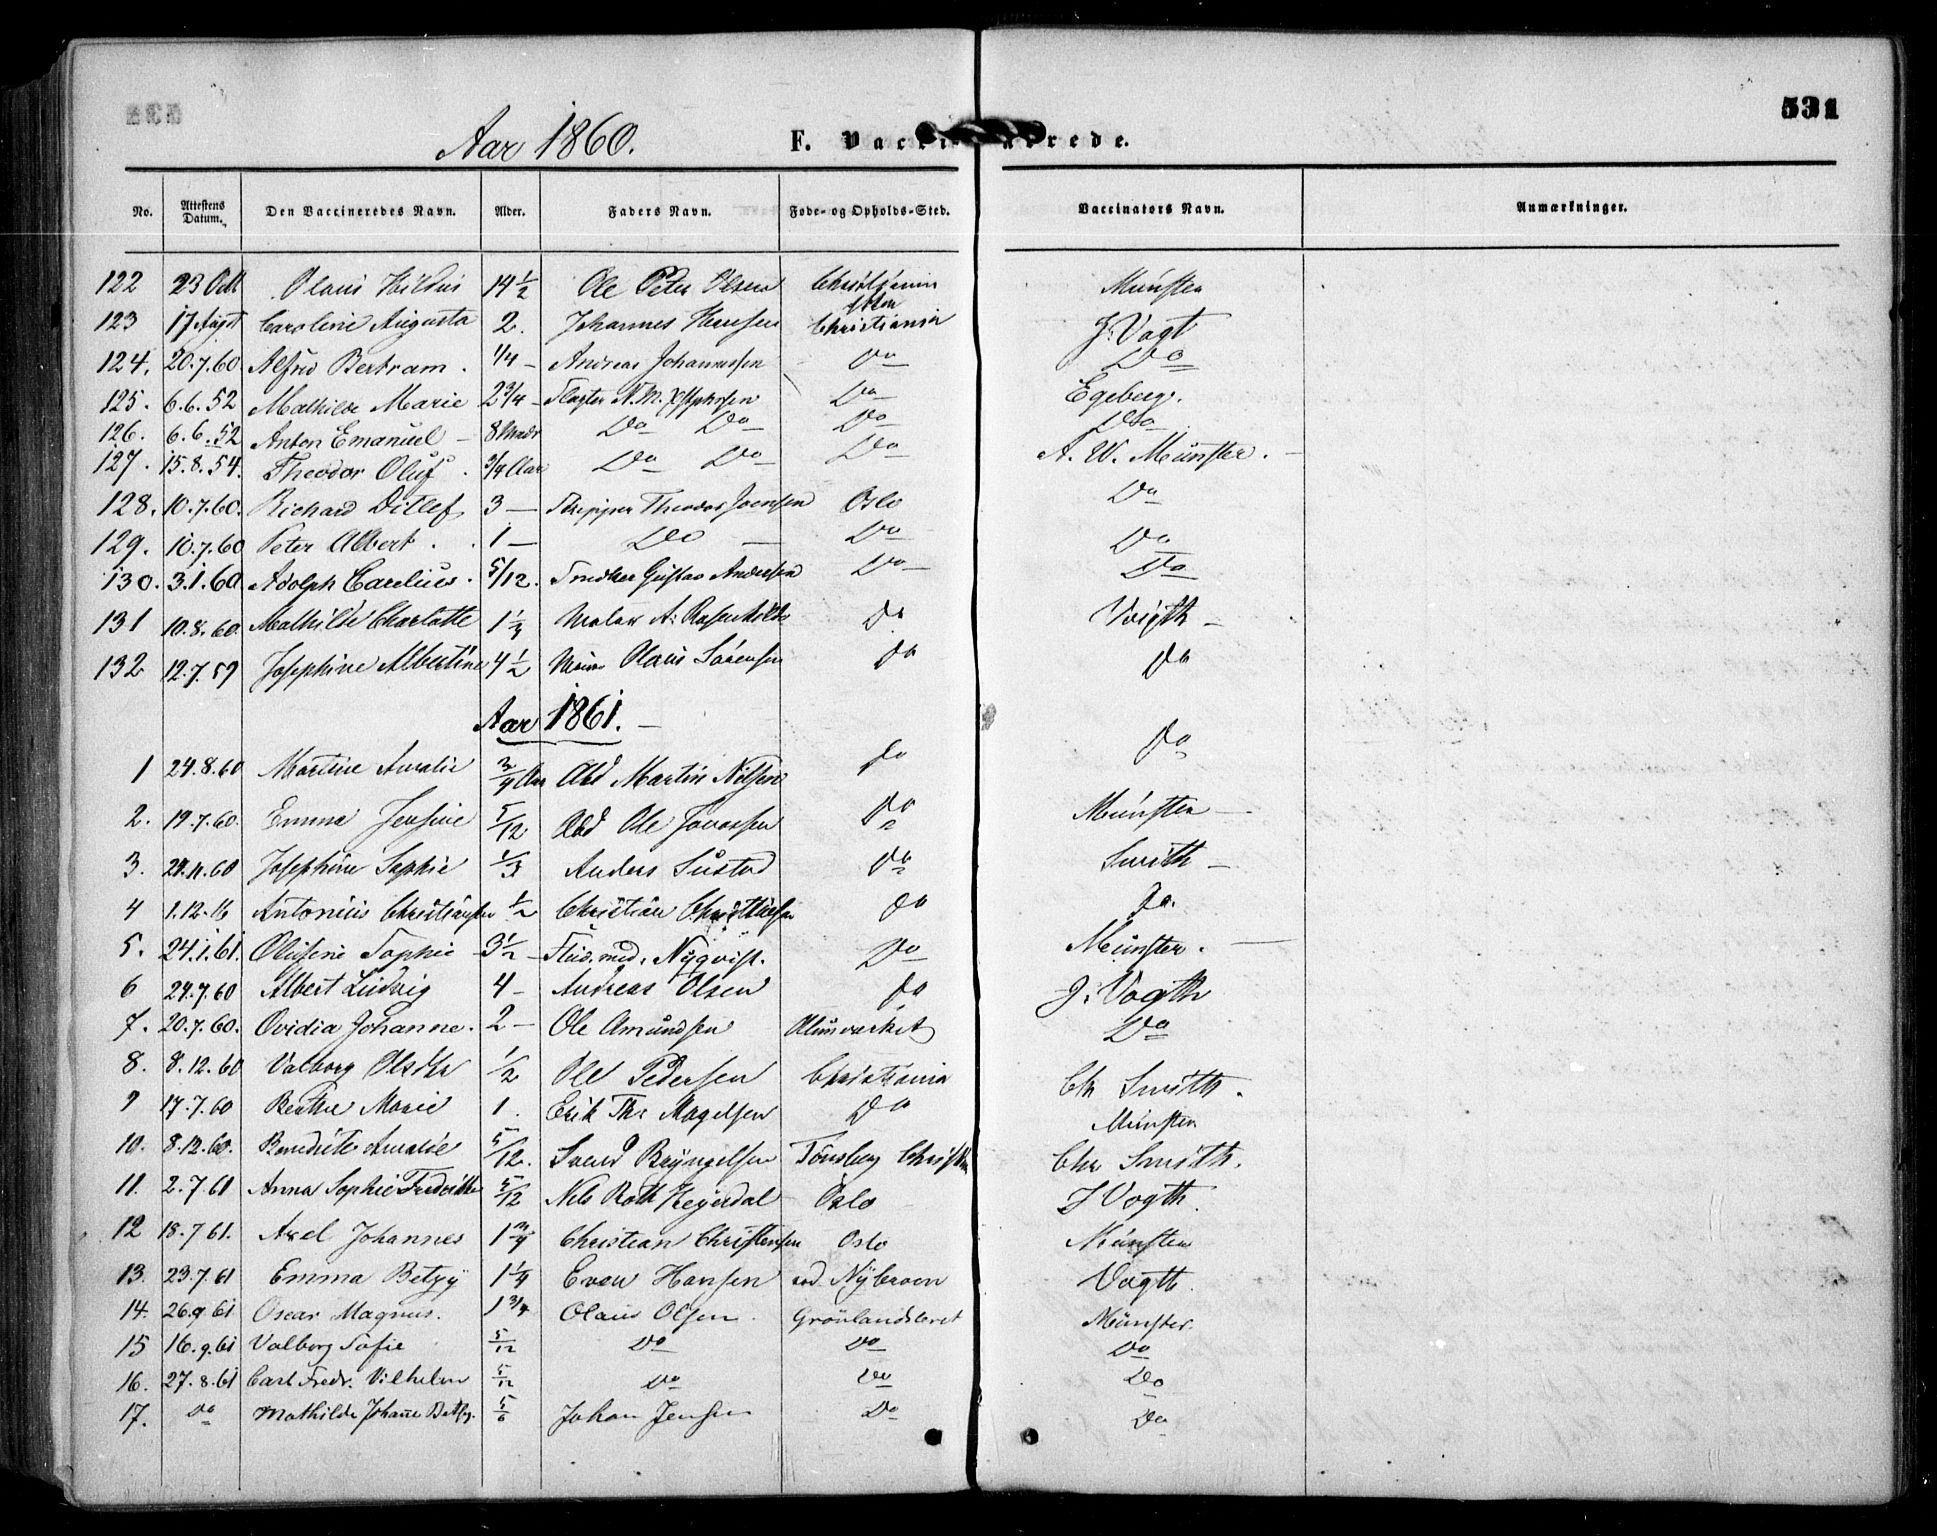 531
Aar 1860.
F. Vacci arrede.
No. | Attestens Datum. | Den Vaccineredes Navn. | Alder. | Faders Navn. | Føde- og Opholds-Sted. | Vaccinators Navn. | Anmærkninger.
122 | 23 Oct | Olaus | 14 1/2 | Ole Peter Olsen | Christiania | Münster
123 | 17 Augst | Caroline Augusta | 2. | Johannes Hansen | Christiania | J. Vogt
124. | 20.7.60. | Alfred Bertram. | 1/4 - | Andreas Johannessen | Do | Do
125. | 6.6.52 | Mathilde Marie | 2 3/4 - | N. M. | Do | Egeberg.
126. | 6.6.52 | Anton Emanuel - | 8 | Do Do | Do | Do
127. | 15.8.54. | Theodor Oluf. | 3/4 Aar | Do Do | Do | A. W. Münster. -
128. | 10.7.60. | Richard Ditlef | 3 - | Skipper Theodor | Oslo | Do
129. | 10.7.60 | Peter Albert. | 1 - | Do - | Do | Do
130. | 3.1.60 | Adolph Carelius. | 5/12. | Gustav Andersen | Do | Do
131 | 10.8.60. | Mathilde Charlotte | 1 1/3 | Maler A. | Do | Voigth -
132 | 12.7.59 | Josephine Albertine | 4 1/2 | Olaus Sørensen | Do | Do
Aar 1861. -
1 | 24.8.60 | Martine Amalie | 3/4 Aar | Abd Martin Nilsen | Do | Do
2. | 19.7.60. | Emma Jensine | 5/12 | Abd Ole | Do | Münster -
3. | 24.11.60 | Josephine Sophie | 1/3 | Anders | Do | Smith -
4 | 1.12.16 | Antonius Christiansen | 1/2 | Christian | Do | Do.
5. | 24.1.61. | Olufine Sophie - | 3 1/2 - | Stud. med. Nyqvist. | Do | Münster. -
6 | 24.7.60 | Albert Ludvig | 4 - | Andreas Olsen | Do | J. Vogth
7. | 20.7.60. | Ovidia Johanne. | 2 - | Ole Amundsen | Alunverket | Do
8. | 8.12.60 | Valborg | 1/2 | Ole Pedersen | Christiania | Chr Smith.
9 | 17.7.60 | Berthe Marie | 1. | Erik Thr Magelsen | Do | Münster
10. | 8.12.60. | Benedicte Amalie | 5/12. | Svend Bryngelsen | Tönsberg | Chr Smith.
11. | 2.7.61 | Anna Sophie Fredrikke | 5/12 | Nils Roth Heyerdal | Oslo | J Vogth.
12 | 18.7.61. | Axel Johannes | 1 3/4 | Christian Christensen | Oslo | Münster
13. | 23.7.61 | Emma Betzy | 1 1/4 | Even Hansen | ved. Nybroen | Vogth.
14. | 26.9.61 | Oscar Magnus. | 1 3/4 | Olaus Olsen. | Grönlandsleret | Münster.
15 | 16.9.61 | Valborg Sofie | 5/12 | Do | Do | Do
16. | 27.8.61 | Carl Fredr. Vilhelm | 5/12 | Do | Do | Do
17. | Do | Mathilde Johanne Betsy. | 5/6 | Johan Jensen | Do | Do